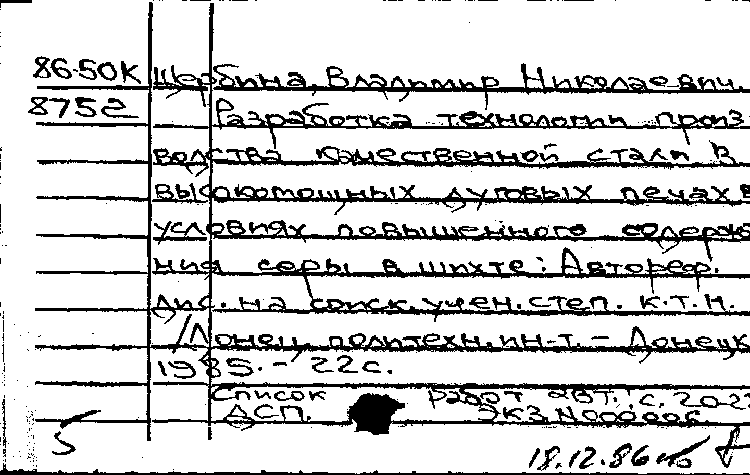 86-50К Щербина, Владимир Николаевич.
8752 Разработка технологии произ-
водства качественной стали в
высокомощных дуговых печах в
условиях повышенного содержа
ния серы в шихте: Автореф.
дис. на соиск. учен. степ. к.т.н.
/Донец. политехн. ин-т. - Донецк
1985. - 22с.
Список работ авт.: с. 20-22
ДСП. ЭКЗ. N000006
5
18.12.86